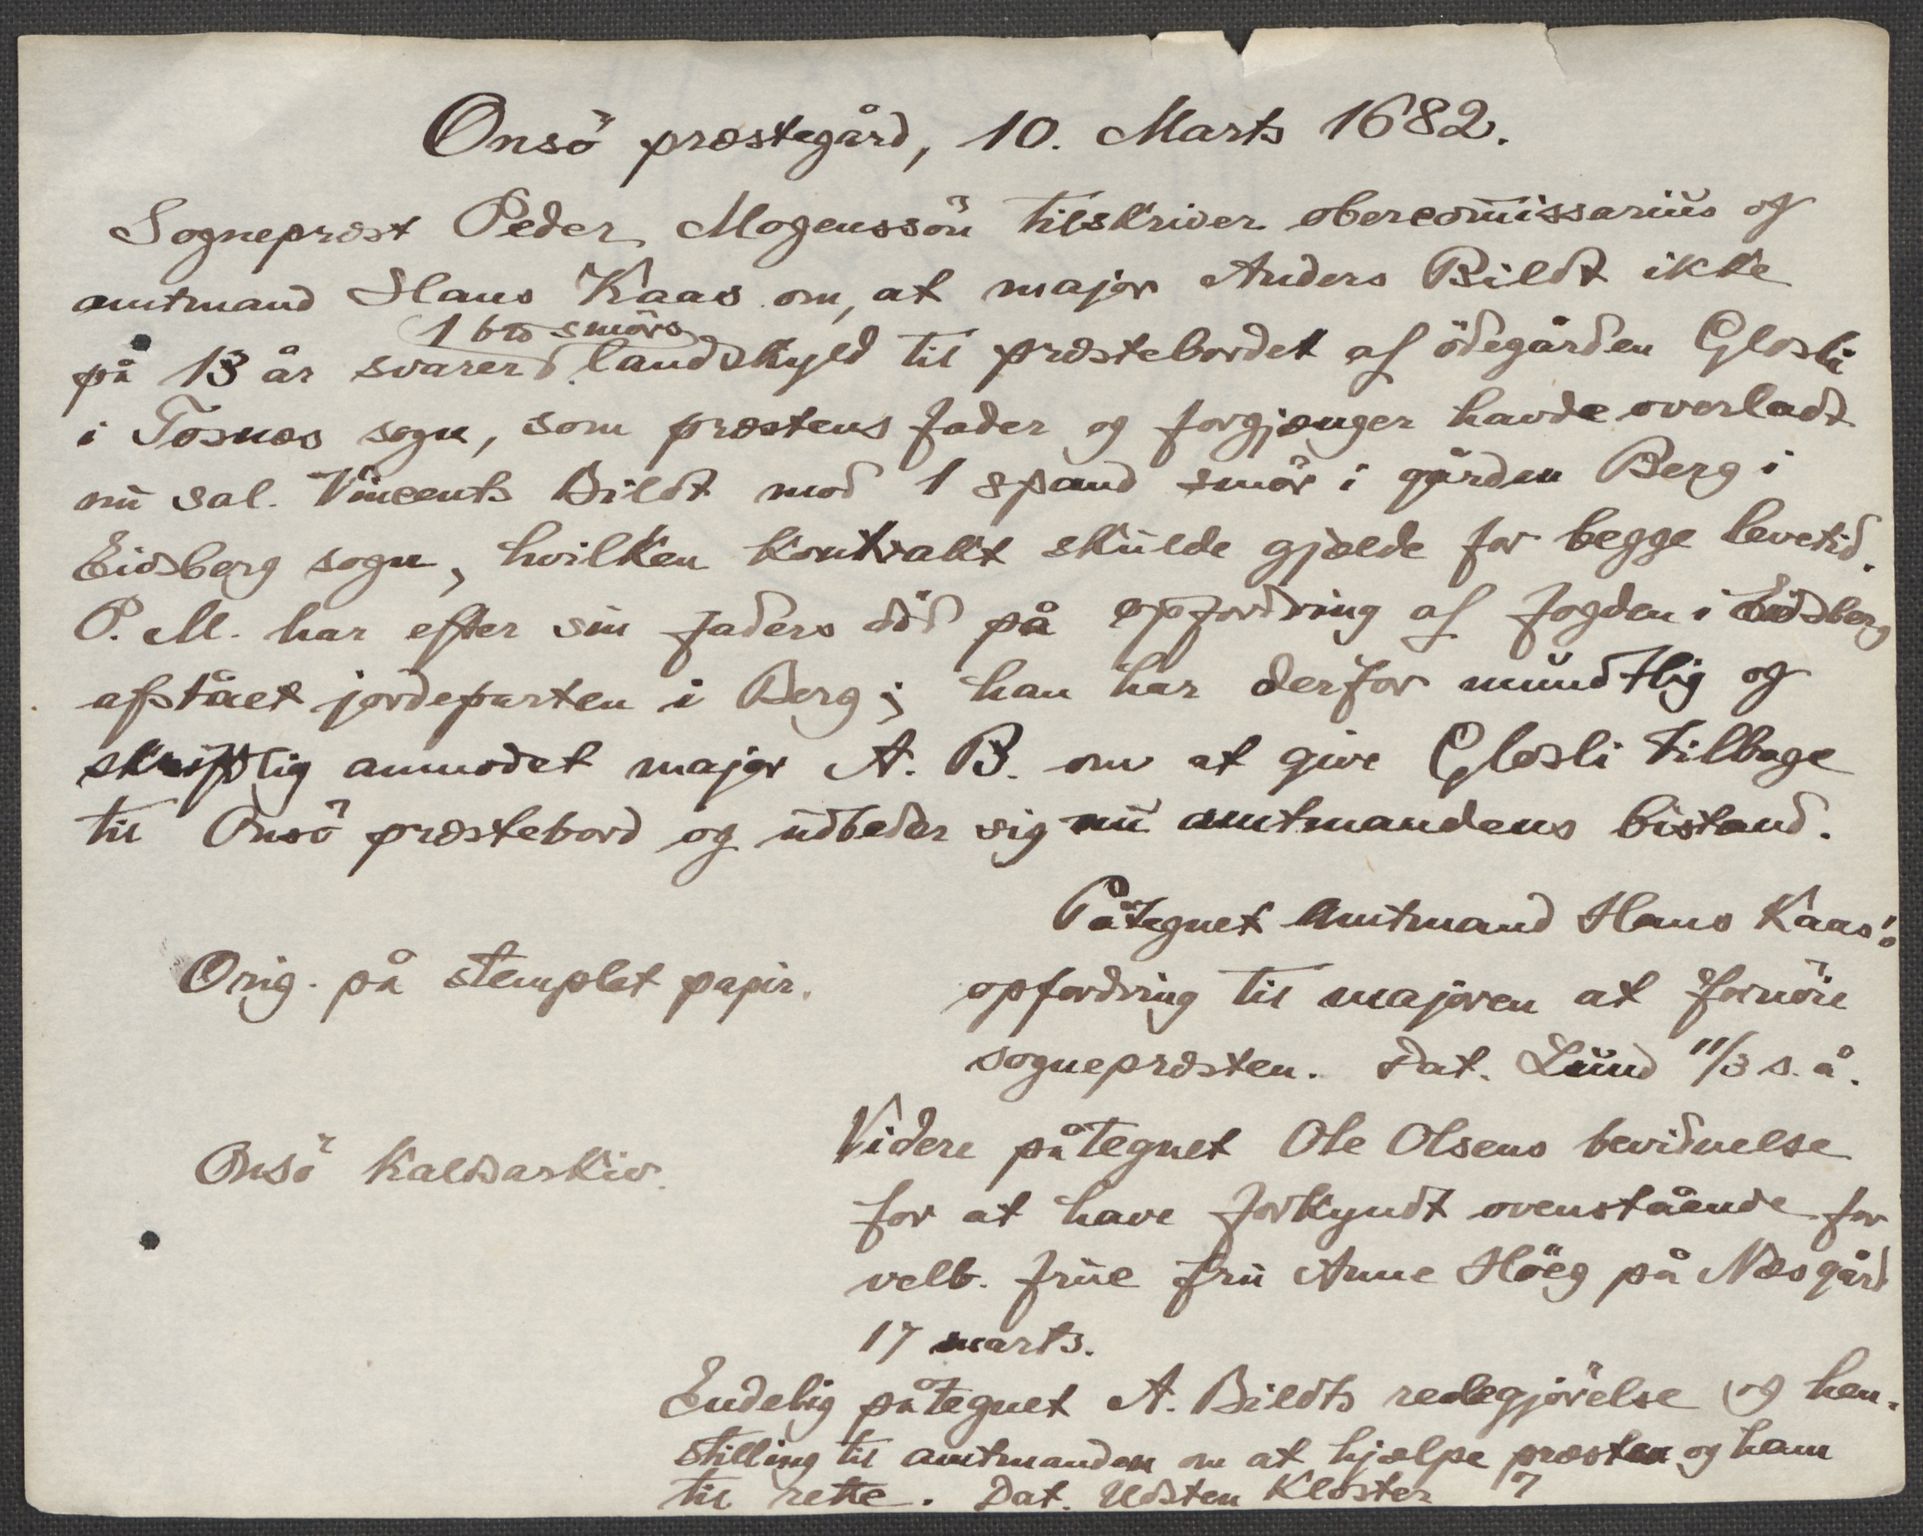 Onsö præstegård, 10. Marts 1682.
Sognepræst Peder Mogenssön tilskriver obercom̄issarius og
amtmand Hans Kaas om, at major Anders Bildt ikke
1 bd smörs
på 13 år svarer landskyld til præstebordet af ödegården Glosli
i Tosnæs sogn, som præstens fader og forgjænger havde overladt
nu sal. Vincents Bildt mod 1 spand smör i gården Berg i
Eidsberg sogn, hvilken kontrakt skulde gjælde for begge levetid.
P. M. har efter sin faders död på opfordring af fogden i Eidsberg
afstået jordeparten i Berg; han har derfor mundtlig og
skriftlig anmodet major A. B. om at give Glosli tilbage
til Onsö præstebord og udbeder sig nu amtmandens bistand.
Påtegnet Amtmand Hans Kaas's
Orig. på stemplet papir.
opfordring til majoren at fornöie
sognepræsten. Dat. Lund 11/3 s. å.
Videre påtegnet Ole Olsens bevidnelse
Onsö kaldsarkiv.
for at have forkyndt ovenstående for
velb. frue fru Anne Höeg på Næsgård
17 marts.
Endelig påtegnet A. Bildts redegjörelse og hen-
stilling til amtmanden om at hjælpe præsten og ham
til rette. Dat. Udsten Kloster 7